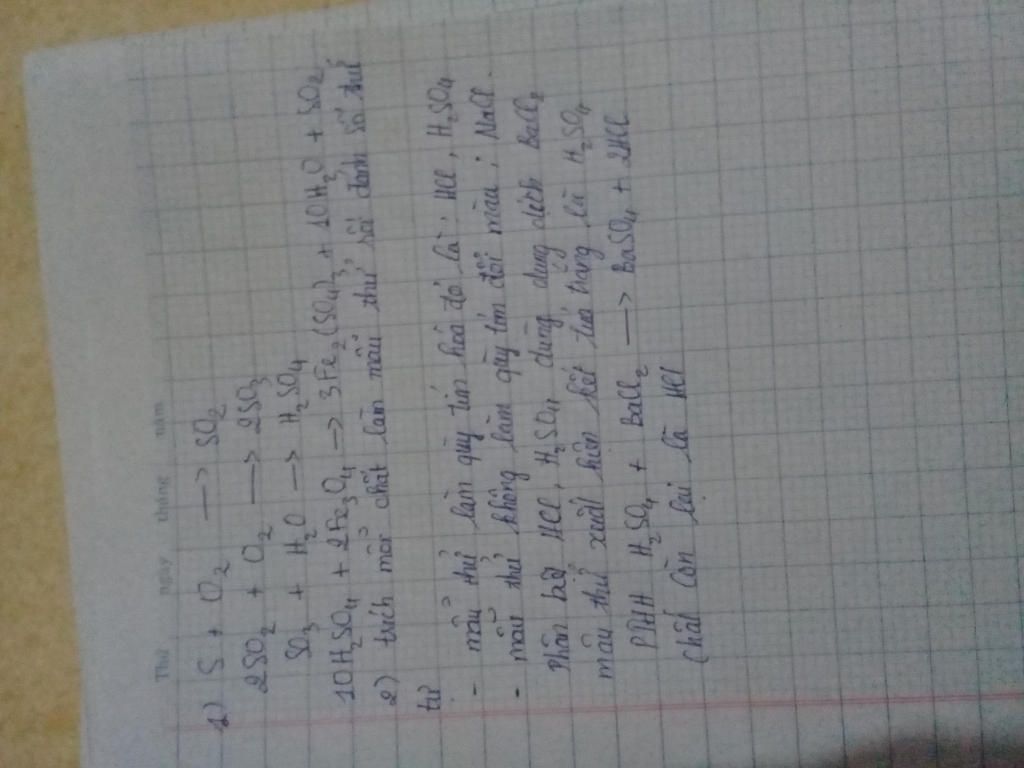 Thứ ngày tháng năm
1) S + O₂ → SO₂
2SO₂ + O₂ → 2SO₃
SO₃ + H₂O → H₂SO₄
10H₂SO₄ + 2Fe₃O₄ → 3Fe₂(SO₄)₃ + 10H₂O + SO₂
2) trích mỗi chất làm mẫu thử, rồi đánh số thứ
tự
- mẫu thử làm quỳ tím hoá đỏ là: HCl, H₂SO₄
- mẫu thử không làm quỳ tím đổi màu: NaCl.
Phân biệt HCl, H₂SO₄ dùng dung dịch BaCl₂
mẫu thử xuất hiện kết tủa trắng là H₂SO₄
PTHH H₂SO₄ + BaCl₂ → BaSO₄ + 2HCl
Chất còn lại là HCl